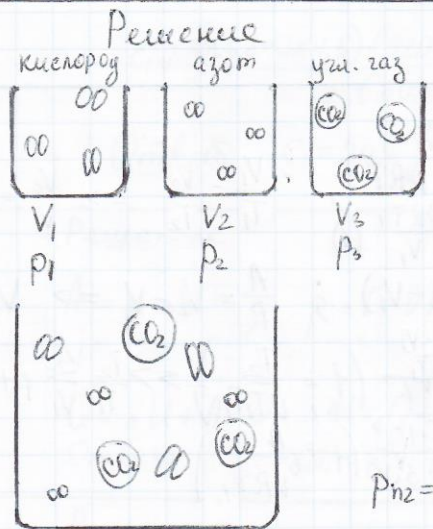 Решение
кислород азот угл. газ
CO₂ CO₂
CO₂
V₁ V₂ V₃
p₁ p₂ p₃
CO₂
CO₂ CO₂
pn₂ =